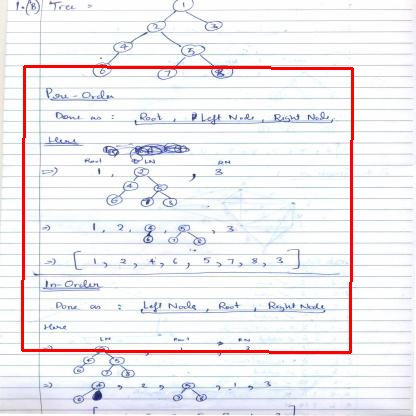 1.(B) Tree =
1
2 3
4 5
6 7 8
Pre-Order
Done as : Root, Left Node, Right Node,
Here
Root LN RN
=> 1, 2 , 3
4 5
6 7 8
=> 1, 2, 4, 5, 3
6 7 8
=> [ 1, 2, 4, 6, 5, 7, 8, 3 ]
In-Order
Done as : Left Node, Root, Right Node
Here
LN Root RN
=> 2 , 1 , 3
4 5
=> 4, 2, 5, 1, 3